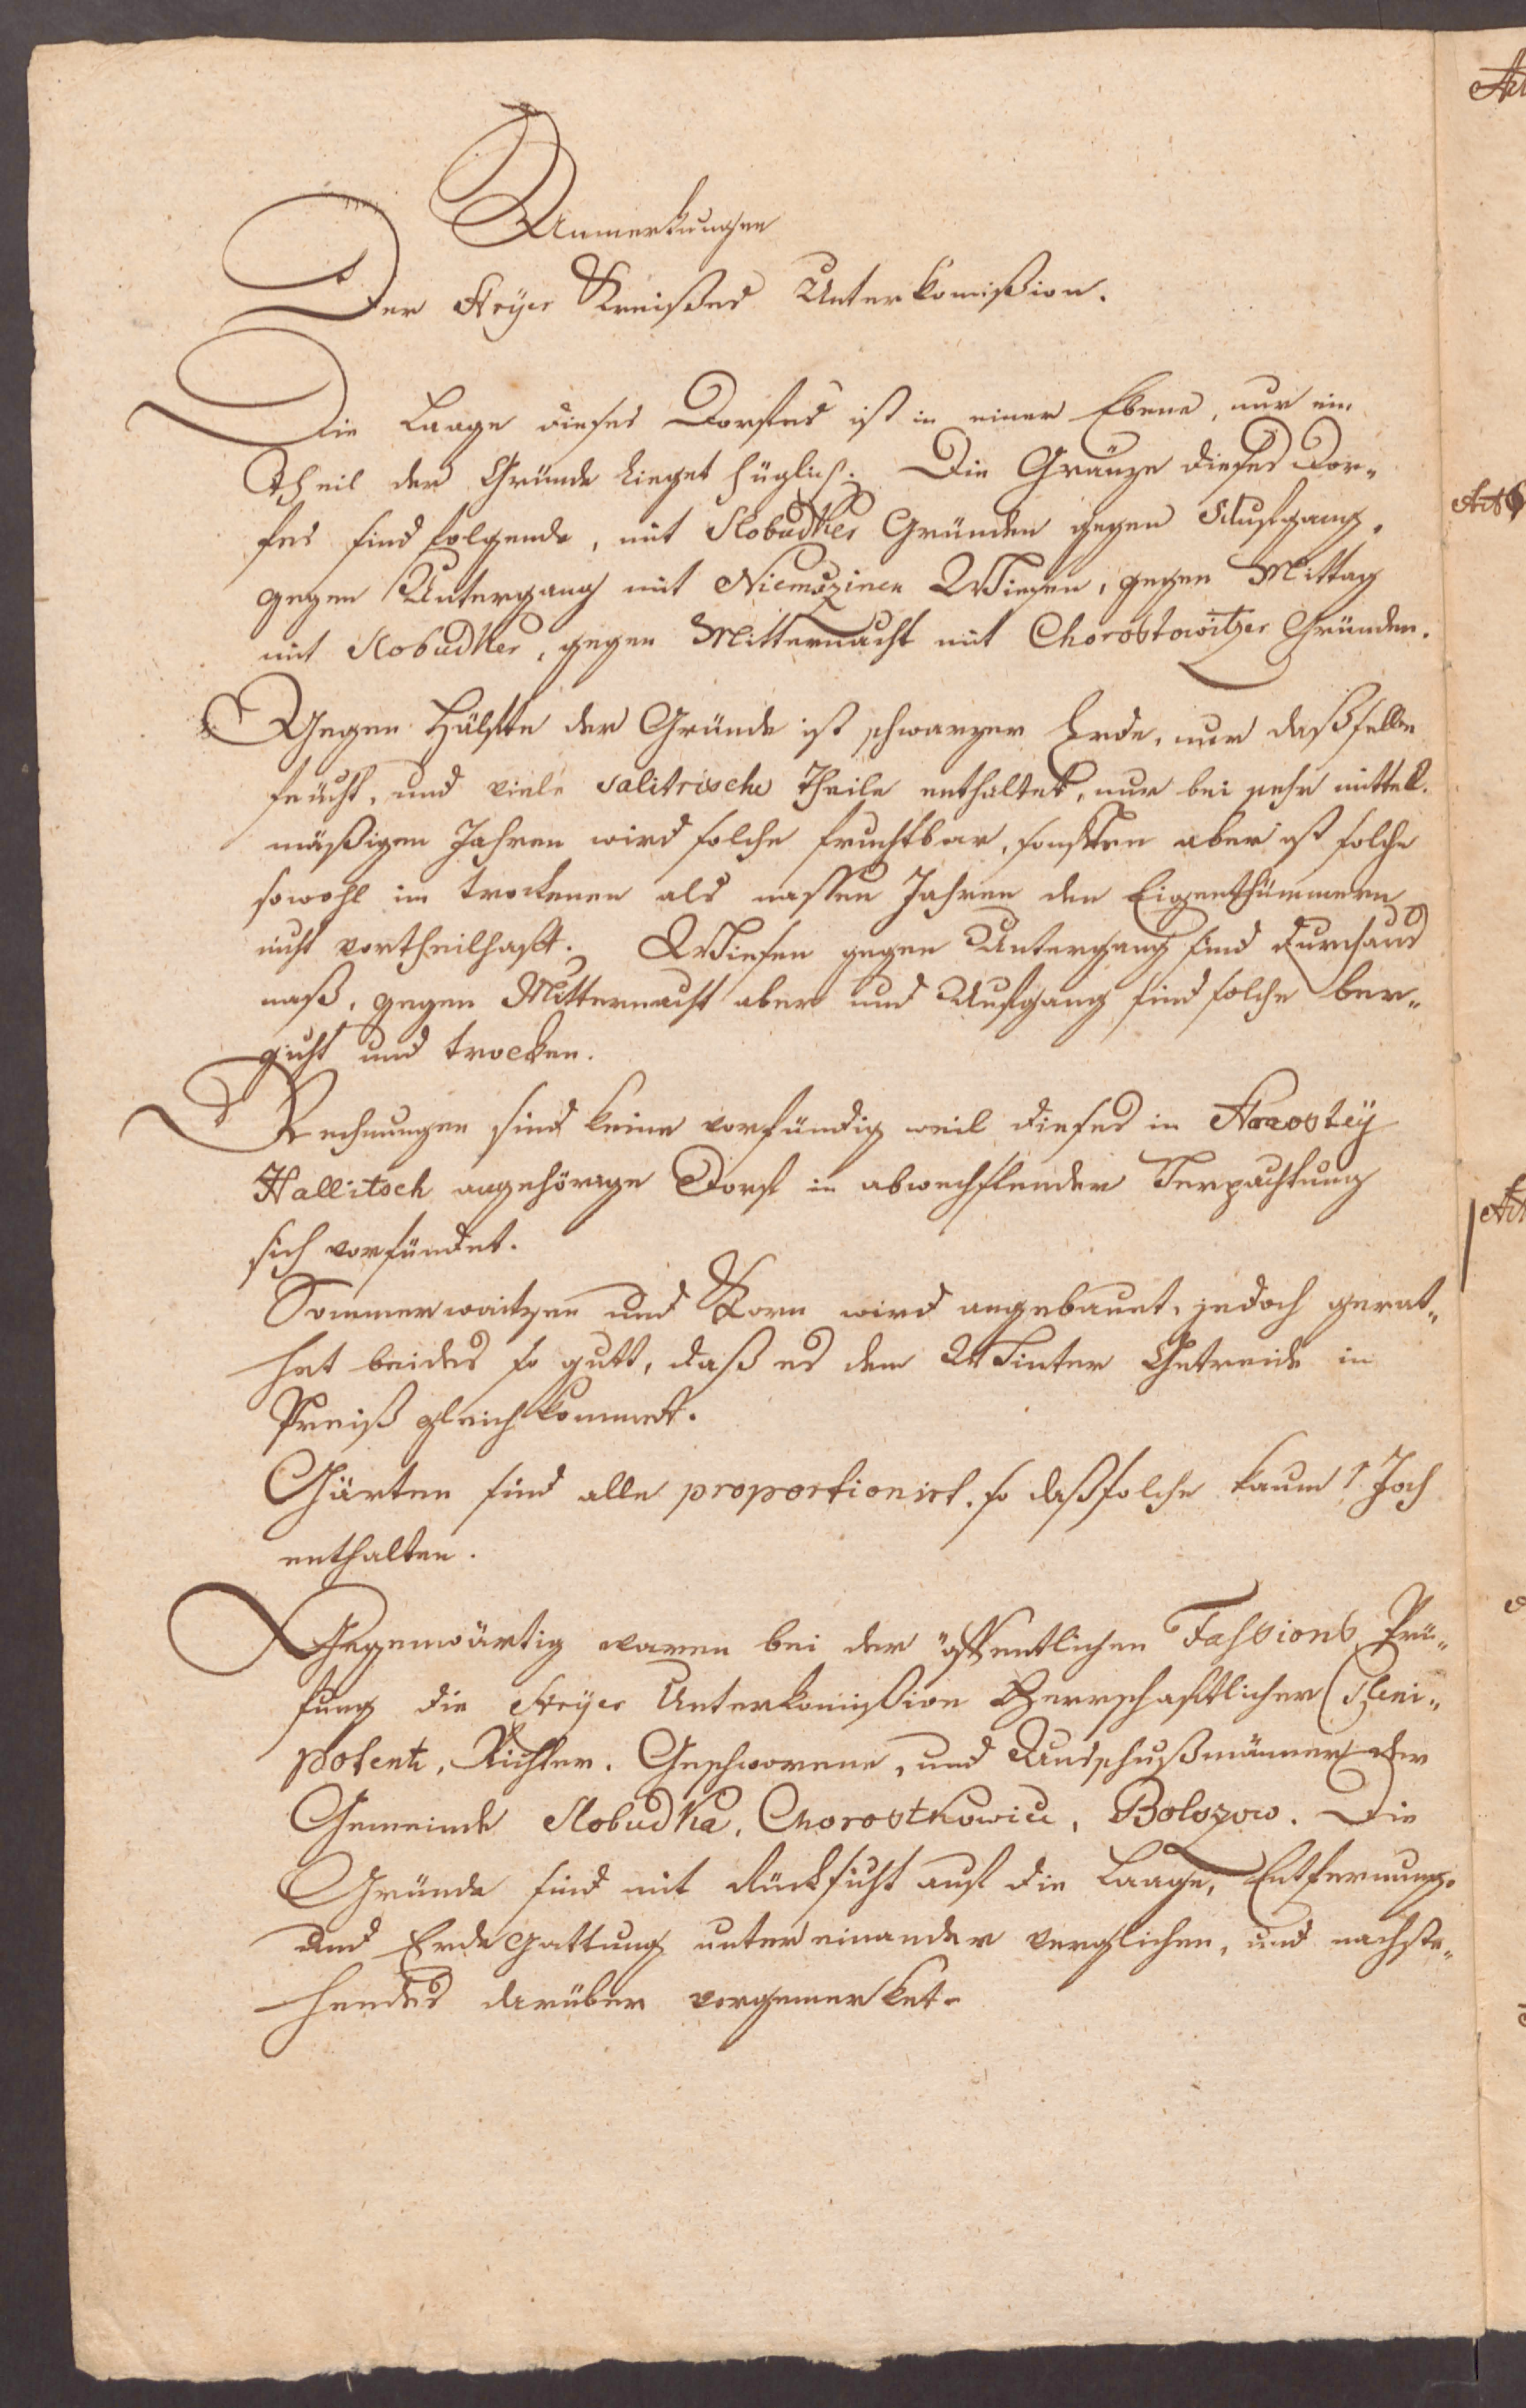 Anmerkungen
Der Stryer Kreißes Unterkomißion.
Die Laage dieses Dorfes ist in einer Ebene, nur ein
Theil der Gründe lieget hüglich. Die Gränze dieses Dor„
fes sind folgende, mit Slobudker Gründen gegen Aufgang,
gegen Untergang mit Niemszinen Wiesen, gegen Mittag
mit Slobudker, gegen Mitternacht mit Chorostowitzer Gründen.
Gegen Hälfte der Gründe ist schwarzer Erde, nur daß selbe
feücht, und viele salitrische Theile enthaltet, nur bei sehr mittel„
mäßigen Jahren wird solche fruchtbar, sonsten aber ist solche
sowohl in trockenen als nassen Jahren den Eigenthümmern
nicht vortheilhaft. Wiesen gegen Untergang sind durchaus
naß, gegen Mitternacht aber und Aufgang sind solche ber„
gicht und trocken.
Rechnungen sind keine vorfündig weil dieses in
Hallitsch angehörige Dorf in abwechslender Verpachtung
sich vorfündet.
Sommerwaitzen und Korn wird angebauet, jedoch gerat„
het beides so gutt, daß es dem Winter Getreide in
Preiß gleich kommet.
Gärten sind alle proportionirt, so daß solche kaum 1 Joch
enthalten.
Gegenwärtig waren bei der öffentlichen Fassions Prü„
fung die Stryer Unterkomißion Herrschaftlicher Pleni„
potent, Richter, Geschworene, und Ausschußmänner der
Gemeinde Slobudka, Chorostkowice, Bolszow. Die
Gründe sind mit Rücksicht auf die Laage, Entfernung,
und Erde Gattung untereinander verglichen, und nachste„
hendes darüber vorgemerket.